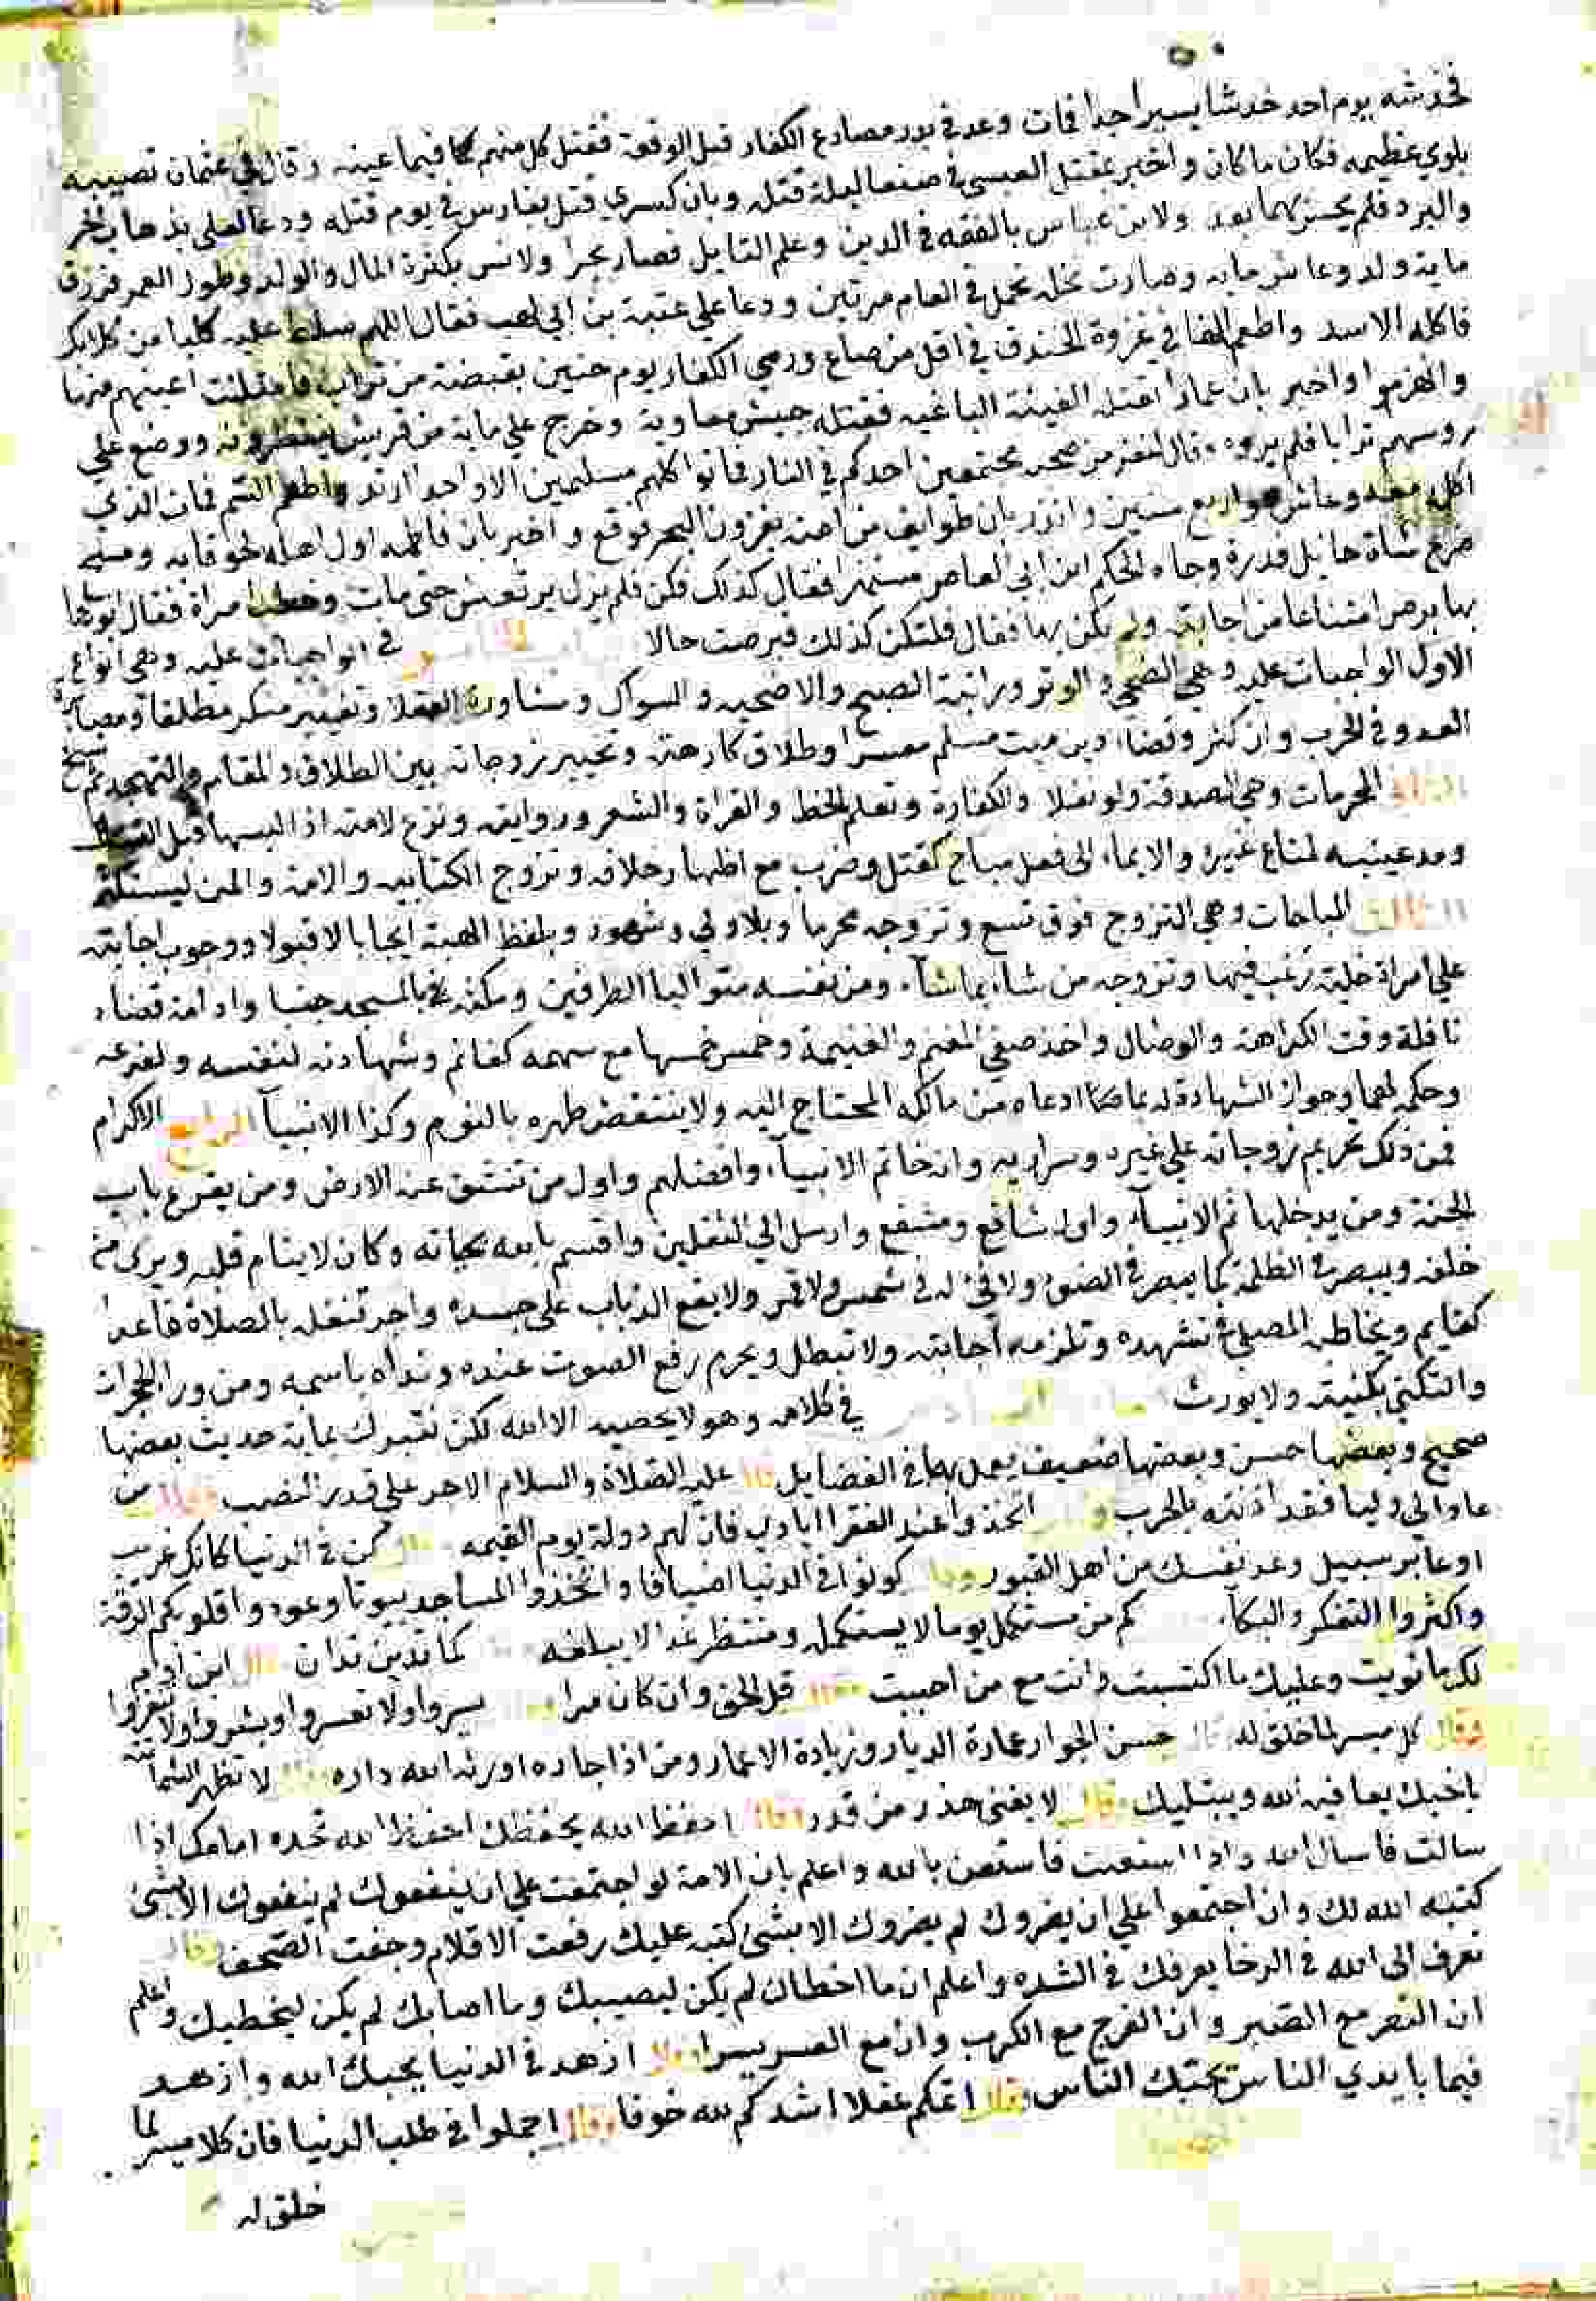 ٥٠
فخدشه يوم احد خدشا يسيرا جدا فمات وعد في بدر مصارع الكفار قبل الوقعة فقتل كل منهم كما فيما عينه وقال في عثمان تصيبه
بلوي عظيمه فكان ما كان واخبر بمقتل العبسي في صنعا ليلة قتله وبان كسري قتل بفارس في يوم قتله ودعا لعلي بذهاب الحر
والبرد فلم يحس بهما بعد ولابن عباس بالفقه في الدين وعلم التاويل فصار بحرا ولانس بكثرة المال والولد وطول العمر فرزق
ماية ولد وعاش ماية وصارت نخله تحمل في العام مرتين ودعا علي عتبة بن ابي لهب فقال اللهم سلط عليه كلبا من كلابك
فاكله الاسد واطعم الفا في غزوة الخندق في اقل من صاع ورمي الكفار يوم حنين بقبضة من تراب فامتلئت اعينهم ترابا
وانهزموا واخبر بان عمارا تقتله الفيئة الباغيه فقتله جيش معاوية وخرج علي ماية من قريش ينتظرونه ووضع علي
روسهم ترابا فلم يروه وقال لنفر من صحبه مجتمعين احدكم في النار فماتوا كلهم مسلمين الا واحد ارتد واطعم السم فمات الذي
اكله معه وعاش هو اربع سنين وانذر بان طوايف من امته يغزون البحر فوقع واخبر بان فاطمه اول اهله لحوقا به ومسح
ضرع شاة حايل فدرة وجاء الحكم ابن ابي العاص مستهزا فقال كذلك فكن فلم يزل يرتعش حتى مات وخطب امراة فقال ابوها
بها برص امتناعا من اجابته ولم يكن بها فقال فلتكن كذلك فبرصت حالا في الواجبات عليه وهي انواع
الاول الواجبات عليه وهي الضحي والوتر وراتبة الصبح والاضحيه والسواك ومشاورة العقلا وتغيير منكر مطلقا ومصابرة
العدو في الحرب وان كثر وقضاء دين ميت مسلم معسرا وطلاق كارهته وتخيير زوجاته بين الطلاق والمقام والتهجد ثم نسخ
الثاني المحرمات وهي الصدقة ولو نفلا والكفارة وتعلم الخط والقراة والشعر وروايته ونزع لامته اذا لبسها قبل القتال
ومد عينيه لمتاع غيره والايماء الى فعل مباح كقتل وضرب مع اظهار خلافه وتزوج الكتابيه والامة والمن ليستكثر
الثالث المباحات وهي التزوج فوق تسع وتزوجه محرما وبلا ولي وشهود وبلفظ الهبة ايجابا لا قبولا ووجوب اجابته
علي امراة خلية رغب فيها وتزوجه من شاء بما شاء ومن نفسه متواليا الطرفين ومكثه بالمسجد جنبا وادامة قضاء
نافلة وقت الكراهة والوصال واخذ صفي المغنم والغنيمة وخمس خمسها مع سهمه كغانم وشهادته لنفسه ولفرعه
وحكمه لهما وجواز الشهادة له بما ادعاه من مالكه المحتاج اليه ولا ينتقض طهره بالنوم وكذا الانبيآ الرابع الاكرام
فمن ذلك تحريم زوجاته علي غيره وسراريه وانه خاتم الانبيآء وافضلهم واول من تنشق عنه الارض ومن يقرع باب
الجنة ومن يدخلها ثم الانبيآء واول شافع ومشفع وارسل الي الثقلين واقسم بالله بحياته وكان لا ينام قلبه ويرى من
خلفه ويبصر في الظلمة كما يبصر في الضوء ولا فئ له في شمس ولا قمر ولا يقع الذباب علي جسده واجر تنفله بالصلاة قاعدا
كقايم ويخاطبه المصلي في تشهده وتلزمه اجابته ولا تبطل ويحرم رفع الصوت عنده ونداه باسمه ومن ورا الحجرات
والتكني بكنيته ولا يورث في كلامه وهو لا يحصيه الا الله لكن نتبرك بماية حديث بعضها
صحيح وبعضها حسن وبعضها ضعيف يعمل بها في الفضايل قال عليه الصلاة والسلام الاجر علي قدر النصب وقال من
عادا لي وليا فقد اذنته بالحرب وقال اتخذوا عند الفقرا ايادي فان لهم دولة يوم القيمه وقال كن في الدنيا كانك غريب
او عابر سبيل وعد نفسك من اهل القبور وقال كونوا في الدنيا اضيافا واتخذوا المساجد بيوتا وعودوا قلوبكم الرقة
واكثروا التفكر والبكآء كم من مستكمل يوما لا يستكمله ومنتظر غدا لا يبلغه كما تدين تدان وقال ابن ادم
لك ما نويت وعليك ما اكتسبت وانت مع من احببت وقال قل الحق وان كان مرا وقال يسروا ولا تعسروا وبشروا ولا تنفروا
وقال كل ميسر لما خلق له وقال حسن الجوار عمارة الديار وزيادة الاعمار ومن اذا جاره اورثه الله داره وقال لا تظهر الشماتة
باخيك يعافيه الله ويبتليك وقال لا يغنى حذر من قدر وقال احفظ الله يحفظك احفظ الله تجده امامك اذا
سالت فاسال الله واذا استعنت فاستعن بالله واعلم بان الامة لو اجتمعت علي ان ينفعوك لم ينفعوك الا بشئ
كتبه الله لك وان اجتمعوا علي ان يضروك لم يضروك الا بشئ كتبه عليك رفعت الاقلام وجفت الصحف وقال
تعرف الى الله في الرخا يعرفك في الشده واعلم ان ما اخطاك لم يكن ليصيبك وما اصابك لم يكن ليخطيك واعلم
ان النصر مع الصبر وان الفرج مع الكرب وان مع العسر يسرا وقال ازهد في الدنيا يحبك الله وازهد
فيما بايدي الناس تحبك الناس وقال اتمكم عقلا اشدكم لله خوفا وقال اجملوا في طلب الدنيا فان كلا ميسر لما
خلق له